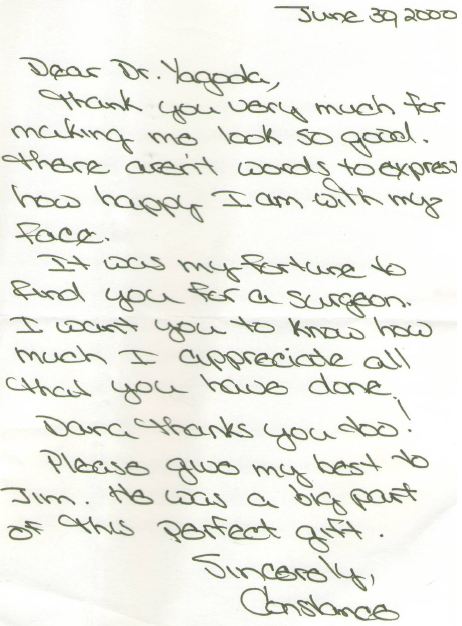 June 30, 2000
Dear Dr. Yagoda,
Thank you very much for
making me look so good.
There aren't words to express
how happy I am with my
face.
It was my fortune to
find you for a surgeon.
I want you to know how
much I appreciate all
that you have done.
Dana thanks you too!
Please give my best to
Jim. He was a big part
of this perfect gift.
Sincerely,
Constance